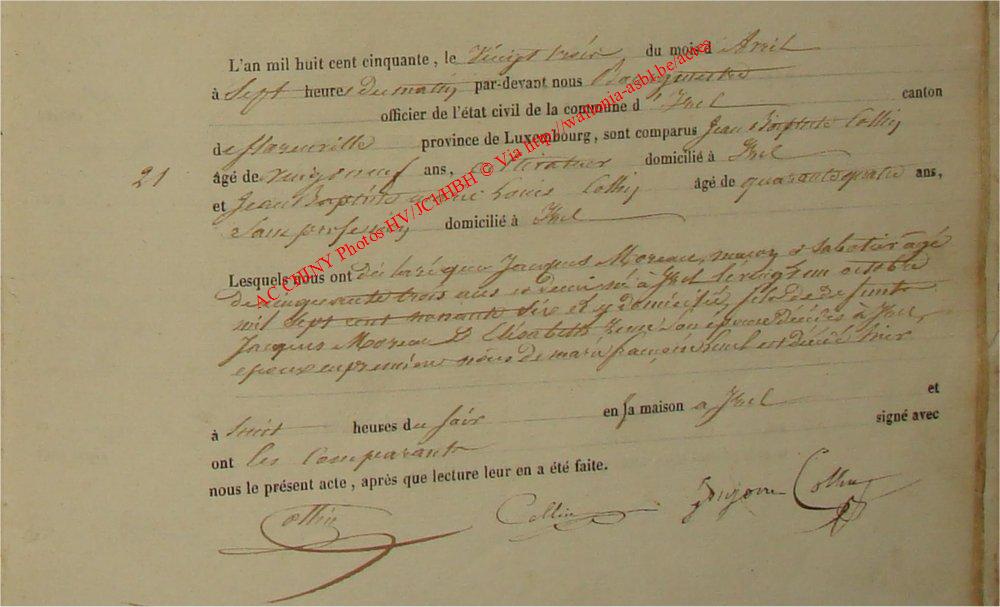 L'an mil huit cent cinquante, le vingt trois du mois d'Avril
à Sept heures du matin par-devant nous Bourgmestre
officier de l'état civil de la commune d'Izel canton
de florenville province de Luxembourg, sont comparus Jean Baptiste Collin
21 âgé de vingt neuf ans, cultivateur domicilié à Izel
et Jean Baptiste Louis Collin âgé de quarante quatre ans,
Sans profession domicilié à Izel
Lesquels nous ont déclaré que Jacques Moreau, maçon & Sabotier âgé
de cinquante trois ans à Izel le vingt un octobre
mil Sept cent nonante Six et y domicilié, fils de defunts
Jacques Moreau & Elisabeth Son épouse décédés à Izel,
époux en premières noces de marie françoise est décédé hier
à huit heures du soir en sa maison à Izel et
ont les comparants signé avec
nous le présent acte, après que lecture leur en a été faite.
Collin Collin Collin
AC CHINY Photos HV/JC1/HBH © Via http://wallonia-asbl.be/actes